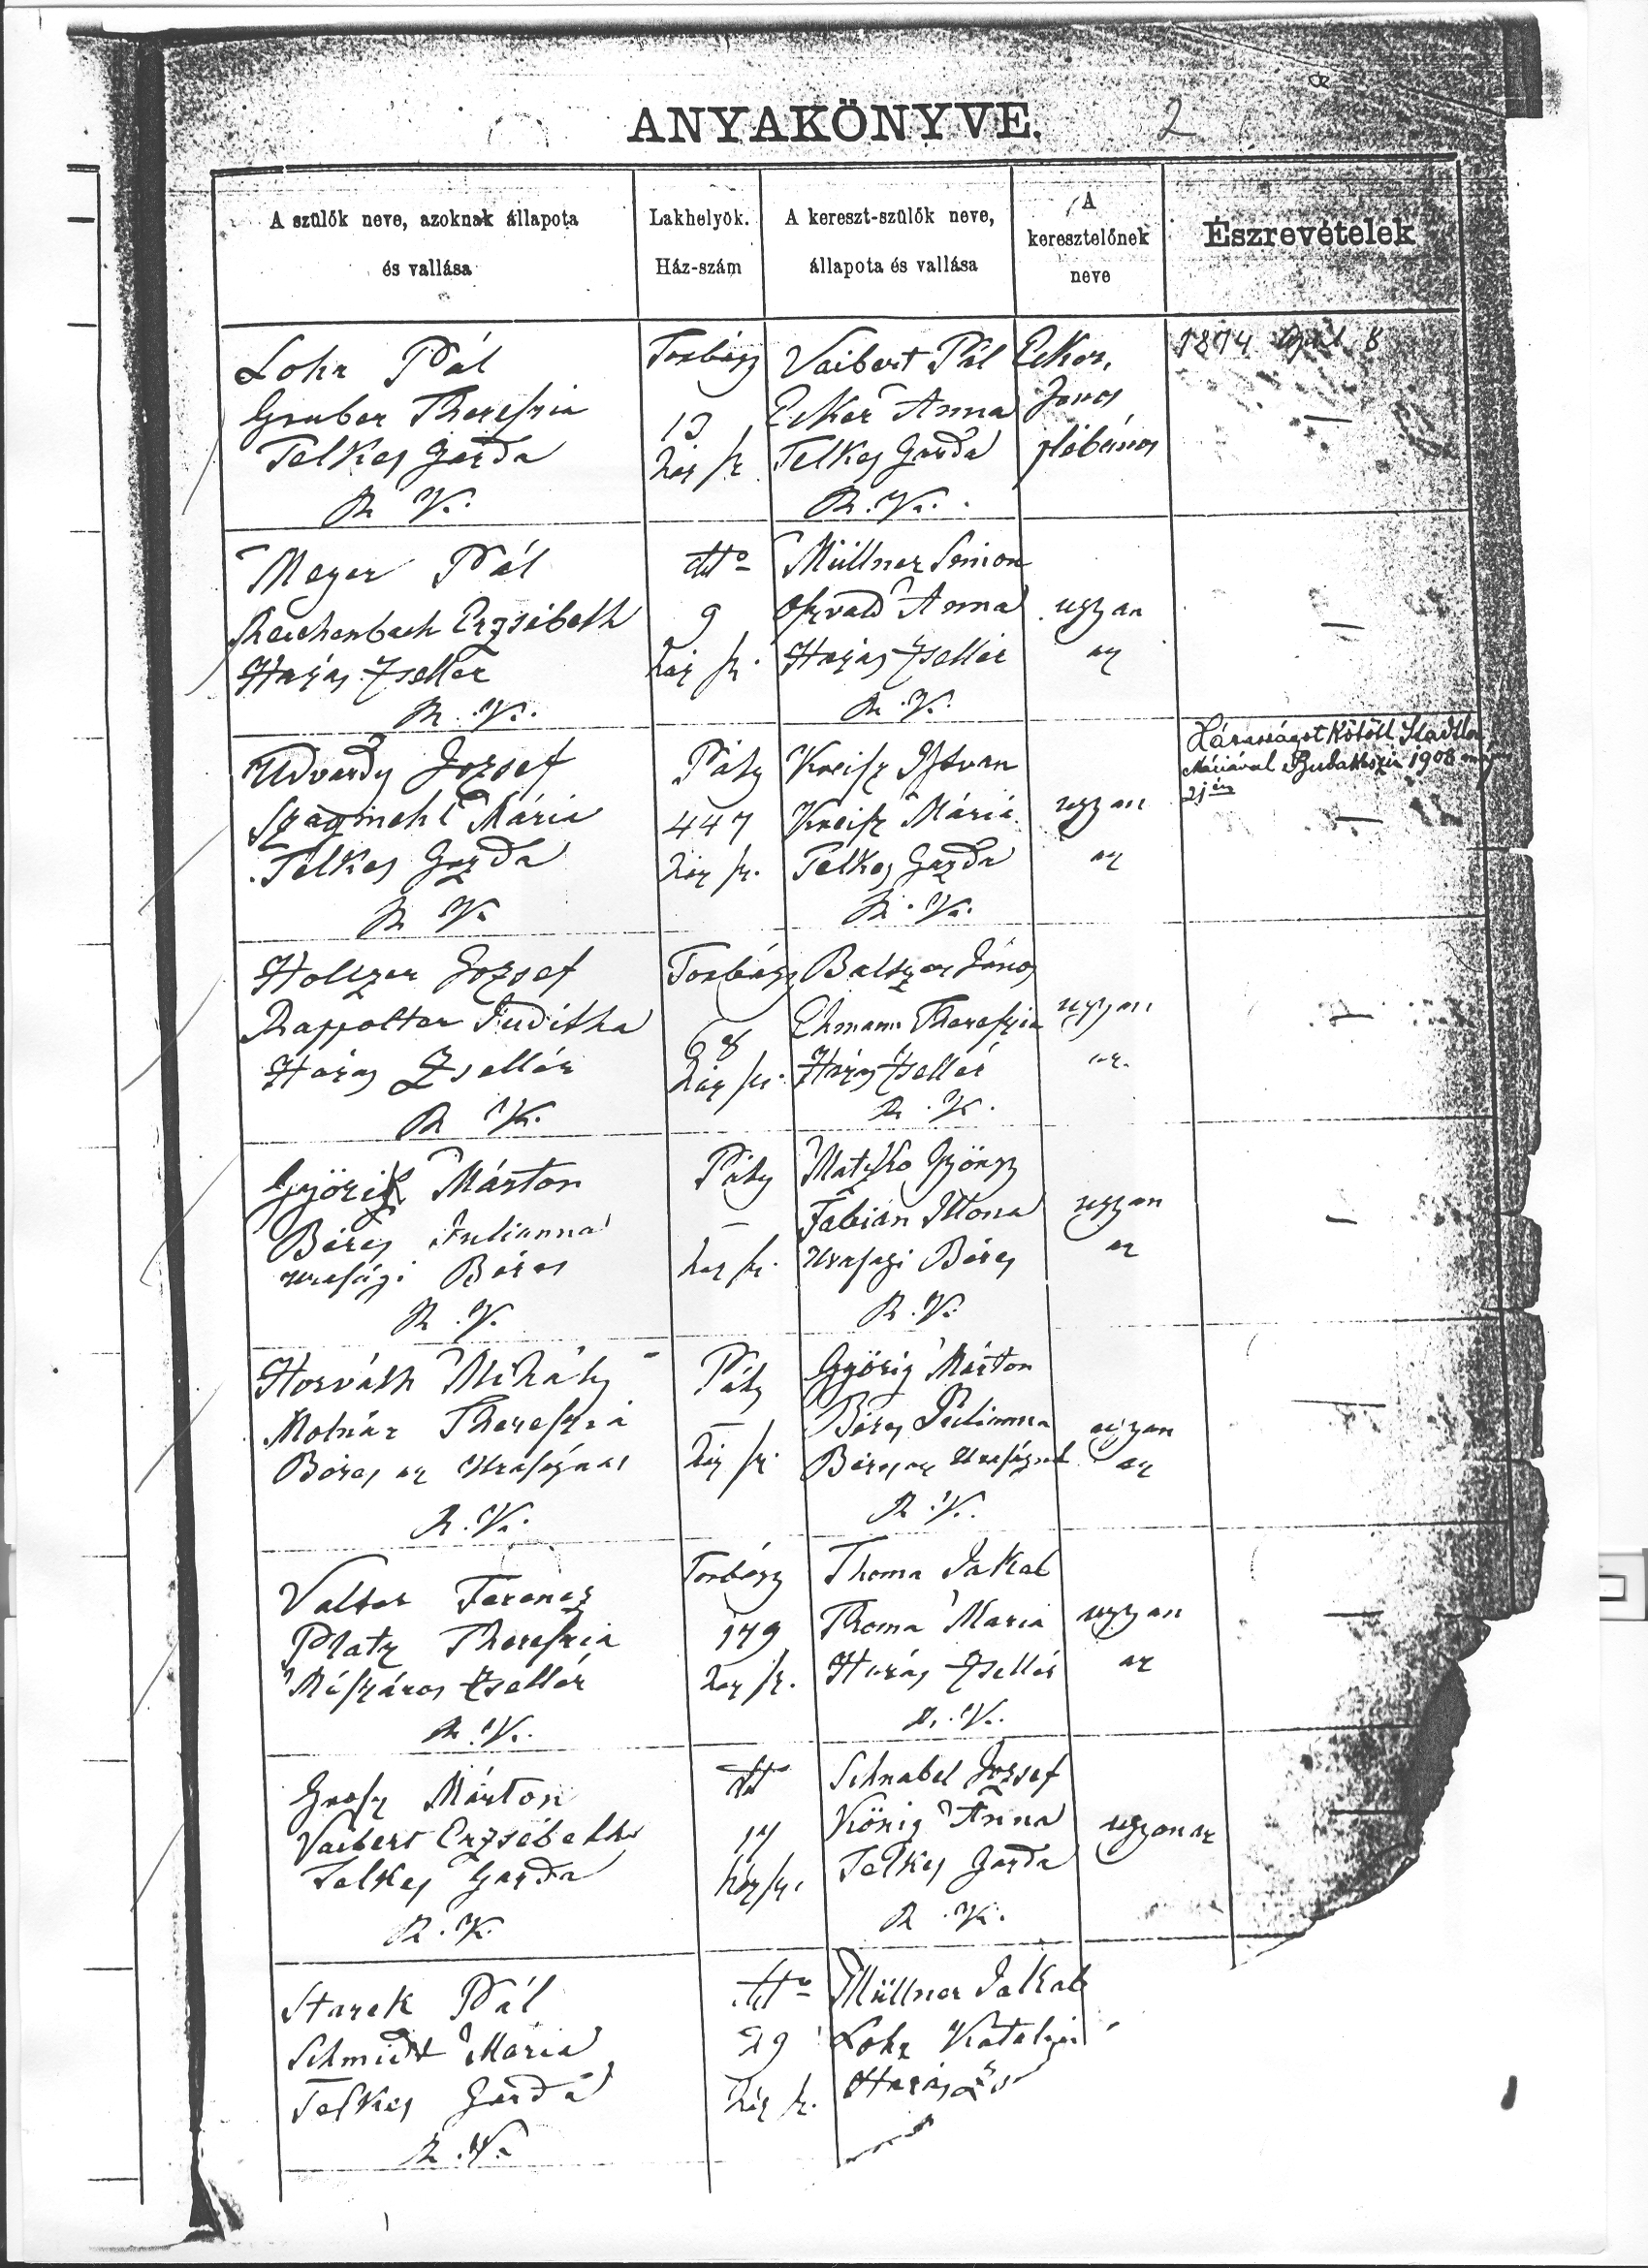 ANYAKÖNYVE. 2
A szülők neve, azoknak állapota
és vallása
Lakhelyök.
Ház-szám
A kereszt-szülők neve,
állapota és vallása
A
keresztelőnek
neve
Észrevételek
Lohr Pál
Gruber Thereszia
Telkes Gazda
R. K.
Torbágy
13
ház sz.
Vaibert Pál
Ecker Anna
Telkes Gazda
R. K.
Ecker
János
plébános
1874 April 8
—
Meyer Pál
Reichenbach Erzsébeth
Házas Zsellér
R. K.
dtto
9
ház sz.
Müllner Simon
Oszvald Anna
Házas Zsellér
R. K.
ugyan
az
—
Udvardy József
Mária
Telkes Gazda
R. K.
Páty
447
ház sz.
Kreisz Istvan
Kreisz Mária
Telkes Gazda
R. K.
ugyan
az
Házasságot kötött Stadtler
Máriával Budakeszin 1908
—
Holczer József
Rappolter Juditha
Házas Zsellér
R. K.
Torbágy
68
ház sz.
János
Ehmann Thereszia
Házas Zsellér
R. K.
ugyan
az.
—
Márton
Béres Julianna
urasági Béres
R. K.
Páty
—
ház sz.
Matyko György
Fabián Illona
Urasagi Béres
R. K.
ugyan
az
—
Horváth Mihály
Molnár Thereszia
Béres az Uraságnál
R. K.
Páty
—
ház sz.
Györig Márton
Béres Julianna
Béres az Uraságnál
R. K.
ugyan
az
—
Valter Ferencz
Platz Thereszia
Mészáros Zsellér
R. K.
Torbágy
179
ház sz.
Thoma Jakab
Thoma Maria
Házas Zsellér
R. K.
ugyan
az
—
Grosz Márton
Vaibert Erzsébeth
Telkes Gazda
R. K.
dtto
17
ház sz.
Schnabel József
König Anna
Telkes Gazda
R. K.
ugyanaz
Starek Pál
Schmidt Maria
Telkes Gazda
R. K.
dtto
29
ház sz.
Müllner Jakab
Lohr Katalin
Házas